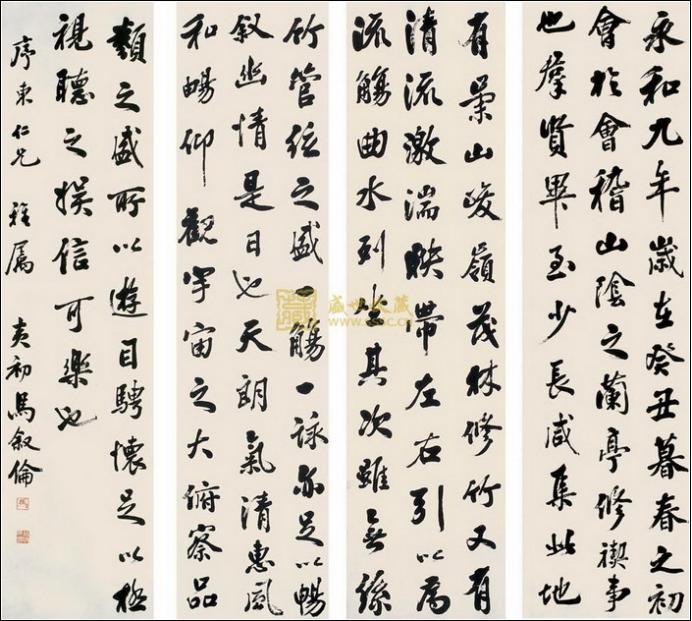 永和九年歲在癸丑暮春之初
會於會稽山陰之蘭亭修禊事
也羣賢畢至少長咸集此地
有崇山峻嶺茂林修竹又有
清流激湍映帶左右引以為
流觴曲水列坐其次雖無絲
竹管弦之盛一觴一詠亦足以暢
叙幽情是日也天朗氣清惠風
和暢仰觀宇宙之大俯察品
類之盛所以遊目騁懷足以極
視聽之娛信可樂也
序東仁兄 雅屬 夷初馬叙倫
盛世收藏